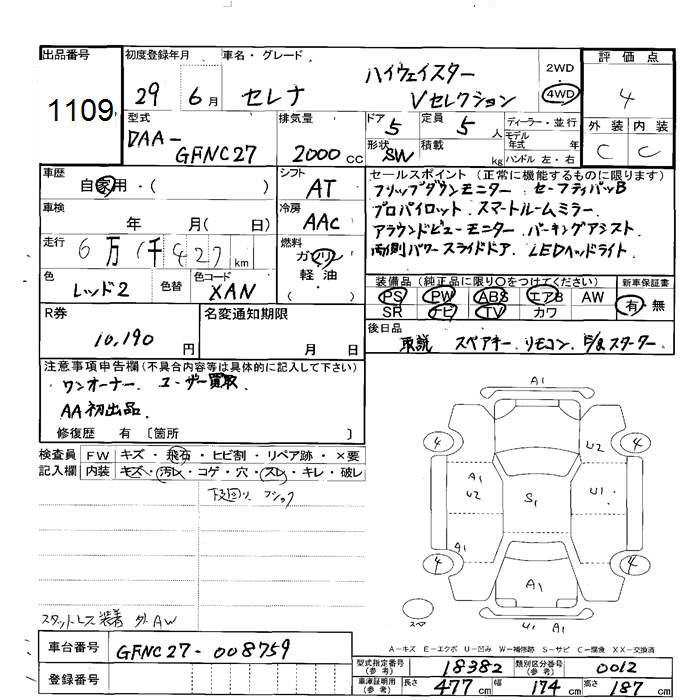 出品番号 初度登録年月 車名・グレード 評価点
1109 29 6月 セレナ ハイウェイスター Vセレクション 2WD 4WD 4
型式 排気量 ドア 定員 ディーラー・並行 外装 内装
DAA-GFNC27 2000cc 5 5人 モデル年式 年 C C
形状 SW 積載 kg ハンドル 左・右
車歴 自家用・( ) シフト AT
セールスポイント (正常に機能するものに限ります)
フリップダウンモニター セーフティパックB
プロパイロット スマートルームミラー
アラウンドビューモニター パーキングアシスト
両側パワースライドドア LEDヘッドライト
車検 年 月(日) 冷房 AAC
走行 6万1千427km 燃料 ガソリン 軽油 ( )
色 レッド2 色替 色コード XAN
装備品 (純正品に限り○をつけてください) 新車保証書
PS PW ABS エアB AW 有・無
SR ナビ TV カワ
R券 10,190円 名変通知期限 月 日
後日品 取説 スペアキー リモコン スターター
注意事項申告欄(不具合内容等は具体的に記入して下さい)
ワンオーナー. ユーザー買取
AA初出品.
修復歴 有 [箇所 ]
検査員記入欄 FW キズ・飛石・ヒビ割・リペア跡・×要
内装 キズ・汚レ・コゲ・穴・スレ・キレ・破レ
下廻り
A1
4 U2 4
A1 U2 S1 U1
A1
4 A1 4
スペア U1 A1
スタットレス装着 外AW
A-キズ E-エクボ U-凹み W-補修跡 S-サビ C-腐食 XX-交換済
車台番号 GFNC27-008759
登録番号
型式指定番号(参考) 18382 類別区分番号(参考) 0012
車庫証明用(参考) 長さ 477cm 幅 174cm 高さ 187cm